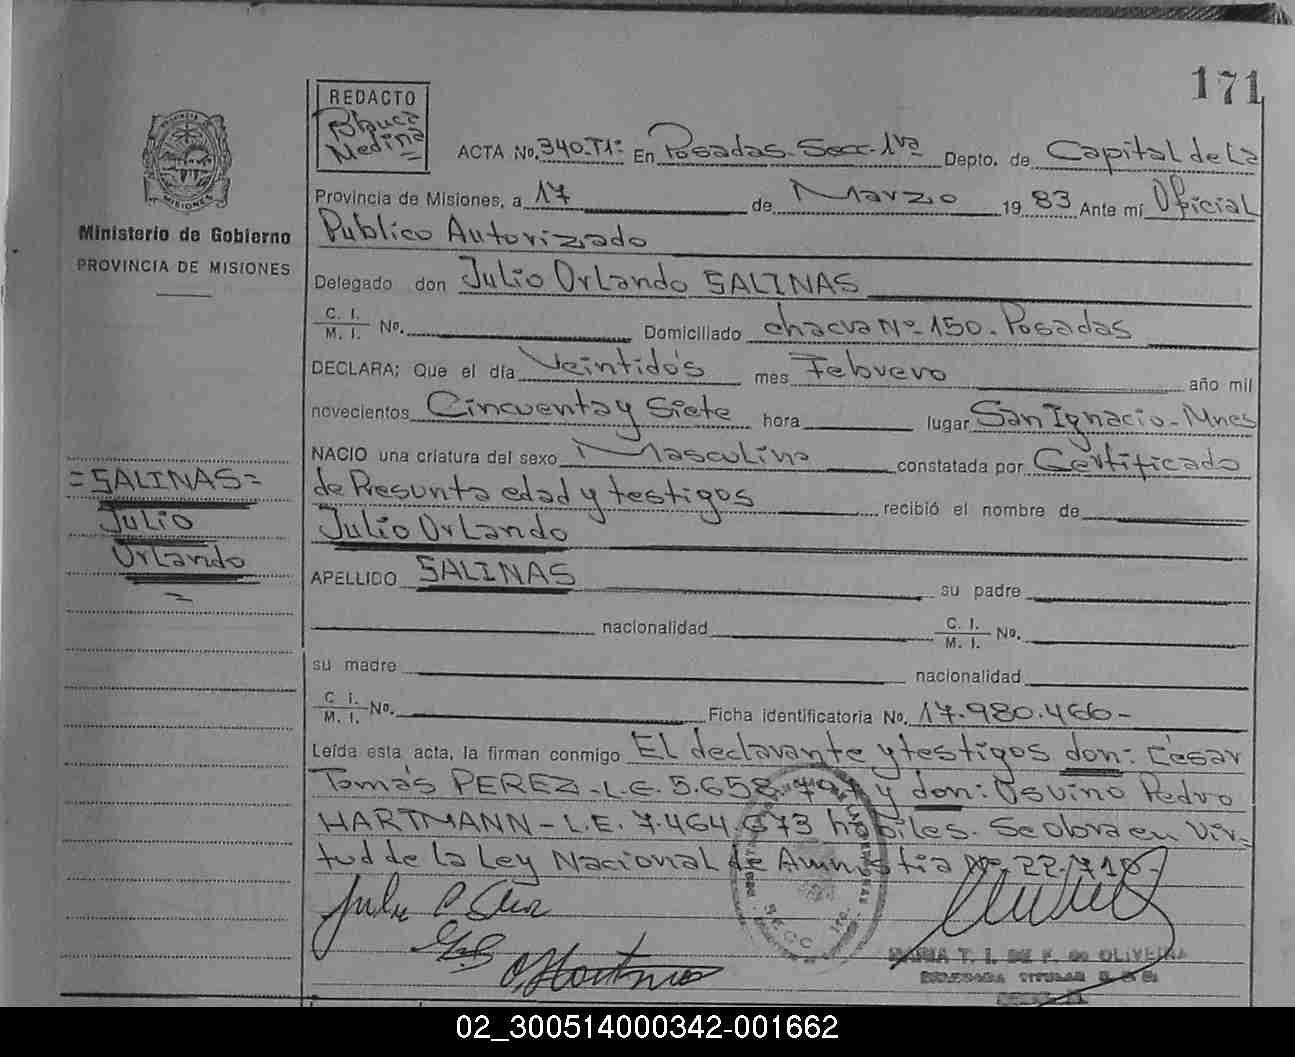 171
REDACTO
Blanca
Medina
ACTA No. 340.T1º En Posadas-Secc-1ra Depto. de Capital de La
Provincia de Misiones, a 17 de Marzo 1983 Ante mí Oficial
Publico Autorizado
Ministerio de Gobierno
PROVINCIA DE MISIONES
Delegado don Julio Orlando SALINAS
C. I.
M. I. No. Domiciliado chacra Nº 150. Posadas
DECLARA; Que el día Veintidós mes Febrero año mil
novecientos Cincuenta y Siete hora lugar San Ignacio-Mnes
NACIO una criatura del sexo Masculino constatada por Certificado
de Presunta edad y testigos recibió el nombre de
=SALINAS=
Julio
Orlando
Julio Orlando
APELLIDO SALINAS su padre
nacionalidad C. I.
M. I. No.
su madre nacionalidad
C. I.
M. I. No. Ficha identificatoria No. 17.980.466-
Leída esta acta, la firman conmigo El declarante y testigos don: César
Tomás PEREZ-L.E. 5.658 y don: Osvino Pedro
HARTMANN-L.E. 7.464 673 hábiles. Se obra en Vir-
tud de la Ley Nacional de Amnistia Nº 22.710-
MARIA T. I. DE F. de OLIVEIRA
DELEGADA TITULAR
02_300514000342-001662